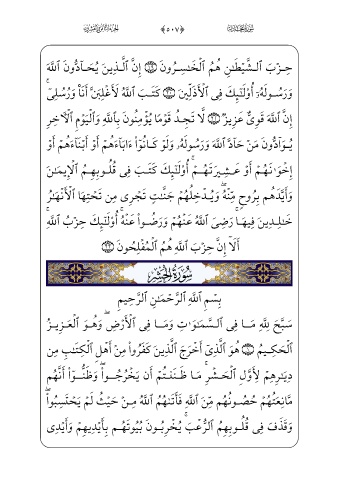 حِزْبَ ٱلشَّيْطَٰنِ هُمُ ٱلْخَٰسِرُونَ ۝١٩ إِنَّ ٱلَّذِينَ يُحَآدُّونَ ٱللَّهَ
وَرَسُولَهُۥٓ أُو۟لَٰٓئِكَ فِى ٱلْأَذَلِّينَ ۝٢٠ كَتَبَ ٱللَّهُ لَأَغْلِبَنَّ أَنَا۠ وَرُسُلِىٓ ۚ
إِنَّ ٱللَّهَ قَوِىٌّ عَزِيزٌ ۝٢١ لَّا تَجِدُ قَوْمًا يُؤْمِنُونَ بِٱللَّهِ وَٱلْيَوْمِ ٱلْءَاخِرِ
يُوَآدُّونَ مَنْ حَآدَّ ٱللَّهَ وَرَسُولَهُۥ وَلَوْ كَانُوٓا۟ ءَابَآءَهُمْ أَوْ أَبْنَآءَهُمْ أَوْ
إِخْوَٰنَهُمْ أَوْ عَشِيرَتَهُمْ ۚ أُو۟لَٰٓئِكَ كَتَبَ فِى قُلُوبِهِمُ ٱلْإِيمَٰنَ
وَأَيَّدَهُم بِرُوحٍ مِّنْهُ ۖ وَيُدْخِلُهُمْ جَنَّٰتٍ تَجْرِى مِن تَحْتِهَا ٱلْأَنْهَٰرُ
خَٰلِدِينَ فِيهَا ۚ رَضِىَ ٱللَّهُ عَنْهُمْ وَرَضُوا۟ عَنْهُ ۚ أُو۟لَٰٓئِكَ حِزْبُ ٱللَّهِ ۚ
أَلَآ إِنَّ حِزْبَ ٱللَّهِ هُمُ ٱلْمُفْلِحُونَ ۝٢٢
سُورَةُ الحَشْرِ
بِسْمِ ٱللَّهِ ٱلرَّحْمَٰنِ ٱلرَّحِيمِ
سَبَّحَ لِلَّهِ مَا فِى ٱلسَّمَٰوَٰتِ وَمَا فِى ٱلْأَرْضِ ۖ وَهُوَ ٱلْعَزِيزُ
ٱلْحَكِيمُ ۝١ هُوَ ٱلَّذِىٓ أَخْرَجَ ٱلَّذِينَ كَفَرُوا۟ مِنْ أَهْلِ ٱلْكِتَٰبِ مِن
دِيَٰرِهِمْ لِأَوَّلِ ٱلْحَشْرِ ۚ مَا ظَنَنتُمْ أَن يَخْرُجُوا۟ ۖ وَظَنُّوٓا۟ أَنَّهُم
مَّانِعَتُهُمْ حُصُونُهُم مِّنَ ٱللَّهِ فَأَتَىٰهُمُ ٱللَّهُ مِنْ حَيْثُ لَمْ يَحْتَسِبُوا۟ ۖ
وَقَذَفَ فِى قُلُوبِهِمُ ٱلرُّعْبَ ۚ يُخْرِبُونَ بُيُوتَهُم بِأَيْدِيهِمْ وَأَيْدِى